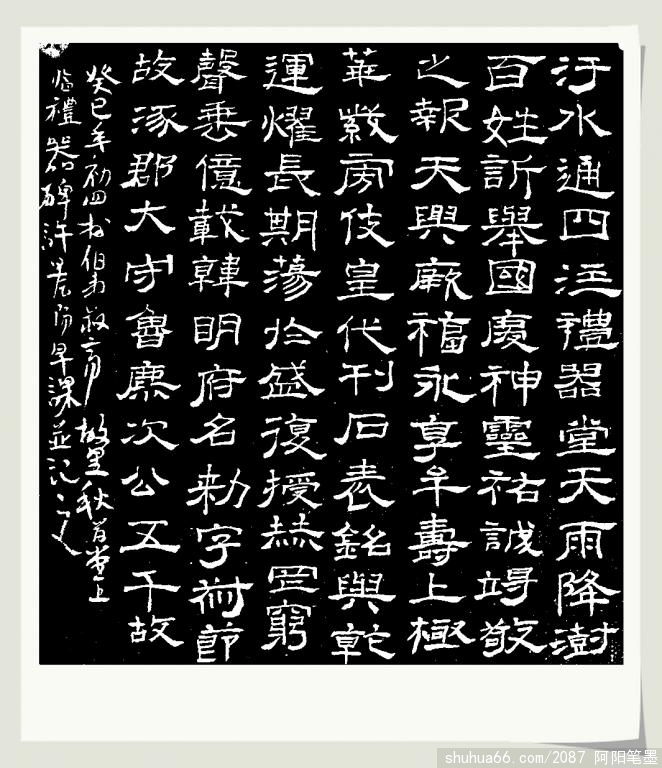 汙水通四注禮器堂天雨降澍
百姓訢舉國慶神靈祐誠竭敬
之報天與厥福永享牟壽上極
華紫旁伎皇代刊石表銘與乾
運燿長期蕩於盛復授赫罔窮
聲垂億載韓明府名勑字叔節
故涿郡大守魯麃次公五千故
癸巳年初四 故里秋
臨禮器碑 早課並記
shuhua66.com/2087 阿阳笔墨